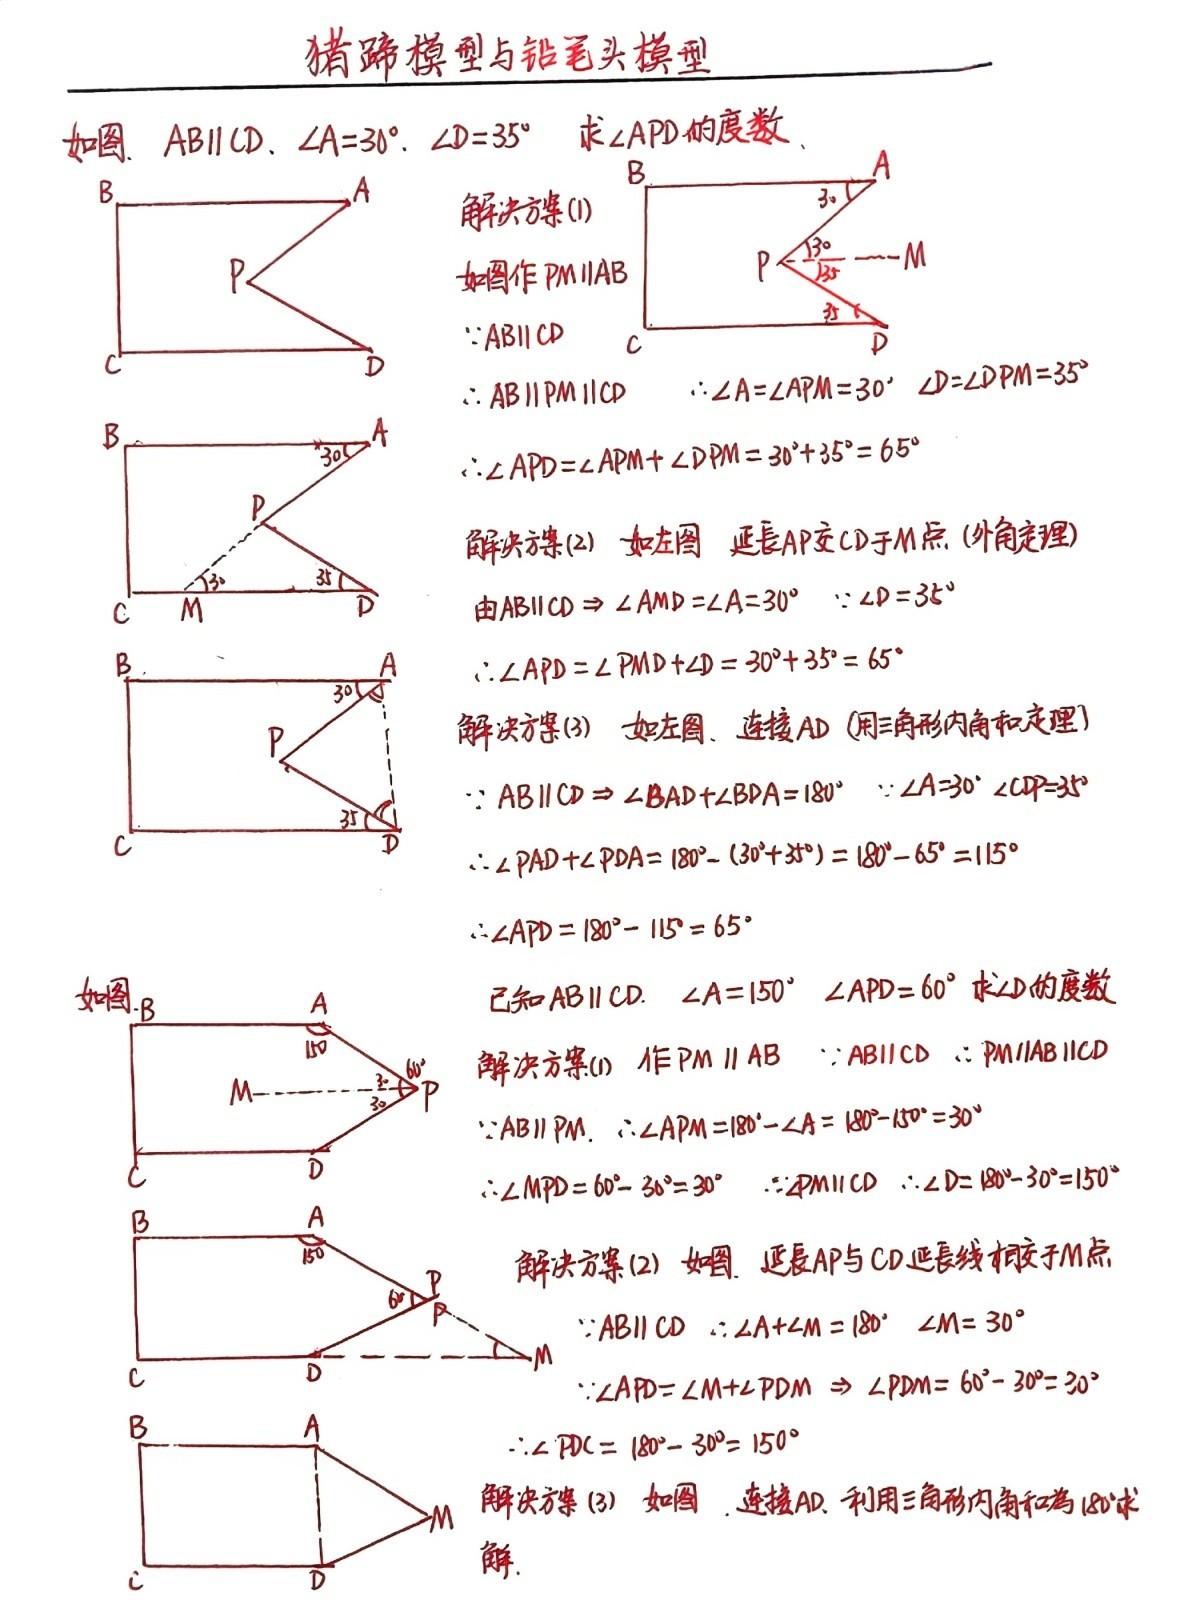 猪蹄模型与铅笔头模型
如图、AB∥CD、∠A=30°、∠D=35° 求∠APD的度数、
B A P C D
解决方案(1)
B A 30 P 30 35 M 35 C D
如图作PM∥AB
∵AB∥CD
∴AB∥PM∥CD ∴∠A=∠APM=30° ∠D=∠DPM=35°
∴∠APD=∠APM+∠DPM=30°+35°=65°
B A 30 P 30 35 C M D
解决方案(2) 如左图 延長AP交CD于M点(外角定理)
由AB∥CD⇒∠AMD=∠A=30° ∵∠D=35°
∴∠APD=∠PMD+∠D=30°+35°=65°
B A 30 P 35 C D
解决方案(3) 如左图、连接AD(用三角形内角和定理)
∵AB∥CD⇒∠BAD+∠BDA=180° ∵∠A=30° ∠CDP=35°
∴∠PAD+∠PDA=180°-(30°+35°)=180°-65°=115°
∴∠APD=180°-115°=65°
如图.
B A 150 M 30 60° P 30 C D
已知AB∥CD. ∠A=150° ∠APD=60° 求∠D的度数
解决方案(1) 作PM∥AB ∵AB∥CD ∴PM∥AB∥CD
∵AB∥PM. ∴∠APM=180°-∠A=180°-150°=30°
∴∠MPD=60°-30°=30° ∵PM∥CD ∴∠D=180°-30°=150°
B A 150 60 P P C D M
解决方案(2) 如图. 延長AP与CD延長线相交于M点
∵AB∥CD ∴∠A+∠M=180° ∠M=30°
∵∠APD=∠M+∠PDM⇒∠PDM=60°-30°=30°
∴∠PDC=180°-30°=150°
B A M C D
解决方案(3) 如图.连接AD、利用三角形内角和為180°求
解.